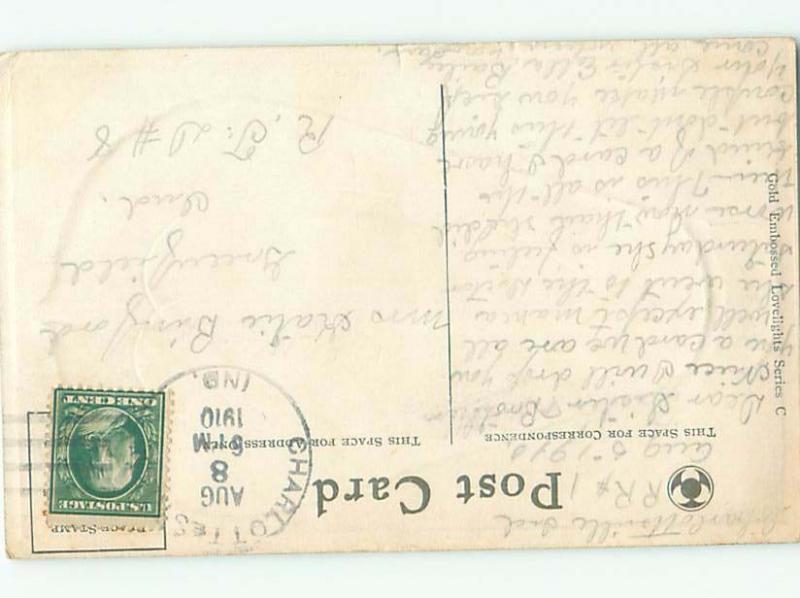 Charlottsville Ind
RR # 1
Aug 5" 1910
Post Card
PLACE STAMP
U.S. POSTAGE
ONE CENT
CHARLOTTES
AUG
8
5 PM
1910
IND.
THIS SPACE FOR CORRESPONDENCE
THIS SPACE FOR ADDRESS ONLY
Dear Sister Brother
Niece I will drop you
you a card we are all
well except mama
she went to the Doctor
Saturday she is feeling
worse now than she did
then This is all the
kind of a card I have
but dont let this young
couple make you sick
Your Sister Ella
come all when
Mrs Katie Binford
Greenfield
Ind.
R. F. D # 8
Gold Embossed Lovelights Series C